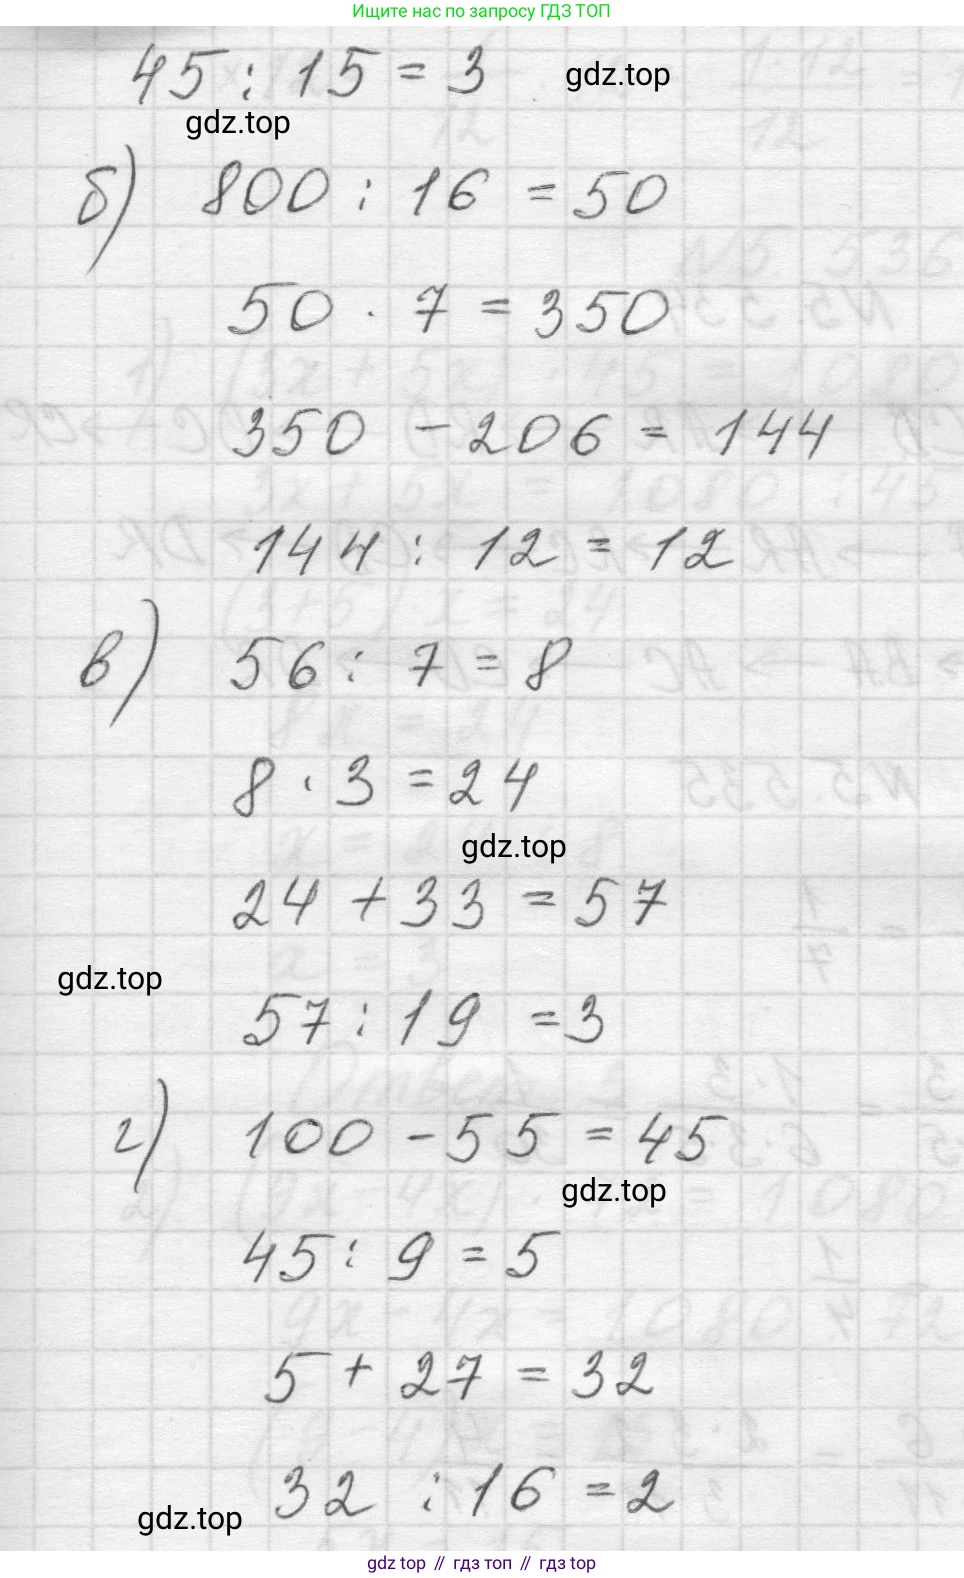 Ищите нас по запросу ГДЗ ТОП
45 : 15 = 3
gdz.top
gdz.top
б) 800 : 16 = 50
50 · 7 = 350
350 - 206 = 144
144 : 12 = 12
в) 56 : 7 = 8
8 · 3 = 24
gdz.top
24 + 33 = 57
gdz.top
57 : 19 = 3
г) 100 - 55 = 45
gdz.top
45 : 9 = 5
5 + 27 = 32
32 : 16 = 2
gdz.top
gdz top // гдз топ // gdz top